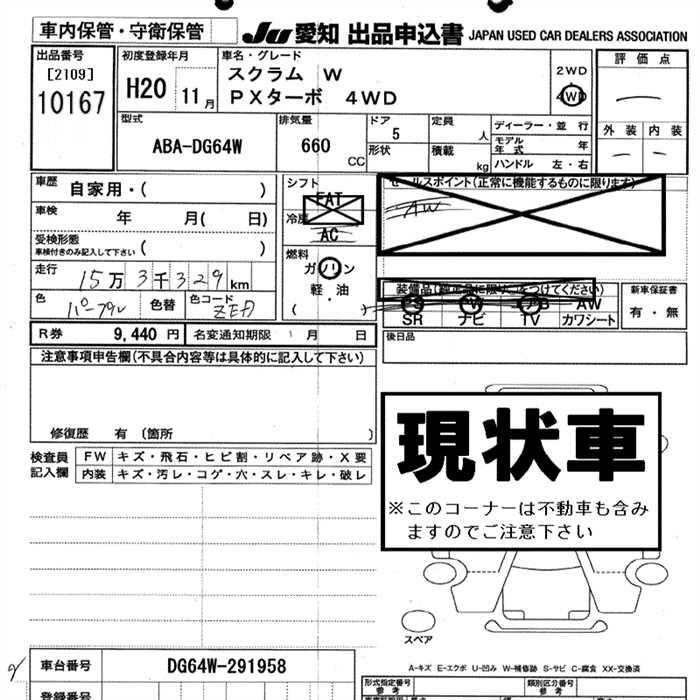 車内保管・守衛保管
JU 愛知 出品申込書 JAPAN USED CAR DEALERS ASSOCIATION
出品番号
[2109]
10167
初度登録年月
H20 11月
車名・グレード
スクラム W
PXターボ 4WD
2WD
4WD
評価点
外装 内装
型式
ABA-DG64W
排気量
660
CC
ドア
5
定員
人
形状
積載
kg
ディーラー・並行
モデル年式 年
ハンドル 左・右
車歴
自家用・( )
車検
年 月( 日)
受検形態
車検付きのみ記入して下さい ( )
走行
15万3千329km
色
パープル
色替
色コード
ZED
シフト
FAT
冷房
AC
燃料
ガソリン
軽・油
( )
セールスポイント(正常に機能するものに限ります)
AW
装備品(純正品に限り○をつけてください)
SR ナビ TV カワシート
AW
新車保証書
有・無
後日品
R券 9,440円 名変通知期限 月 日
注意事項申告欄(不具合内容等は具体的に記入して下さい)
修復歴 有 〔箇所 〕
検査員記入欄
FW キズ・飛石・ヒビ割・リペア跡・X要
内装 キズ・汚レ・コゲ・穴・スレ・キレ・破レ
現状車
※このコーナーは不動車も含み
ますのでご注意下さい
スペア
A-キズ E-エクボ U-凹み W-補修跡 S-サビ C-腐食 XX-交換済
車台番号
DG64W-291958
登録番号
形式指定番号
参考
類別区分番号
参考